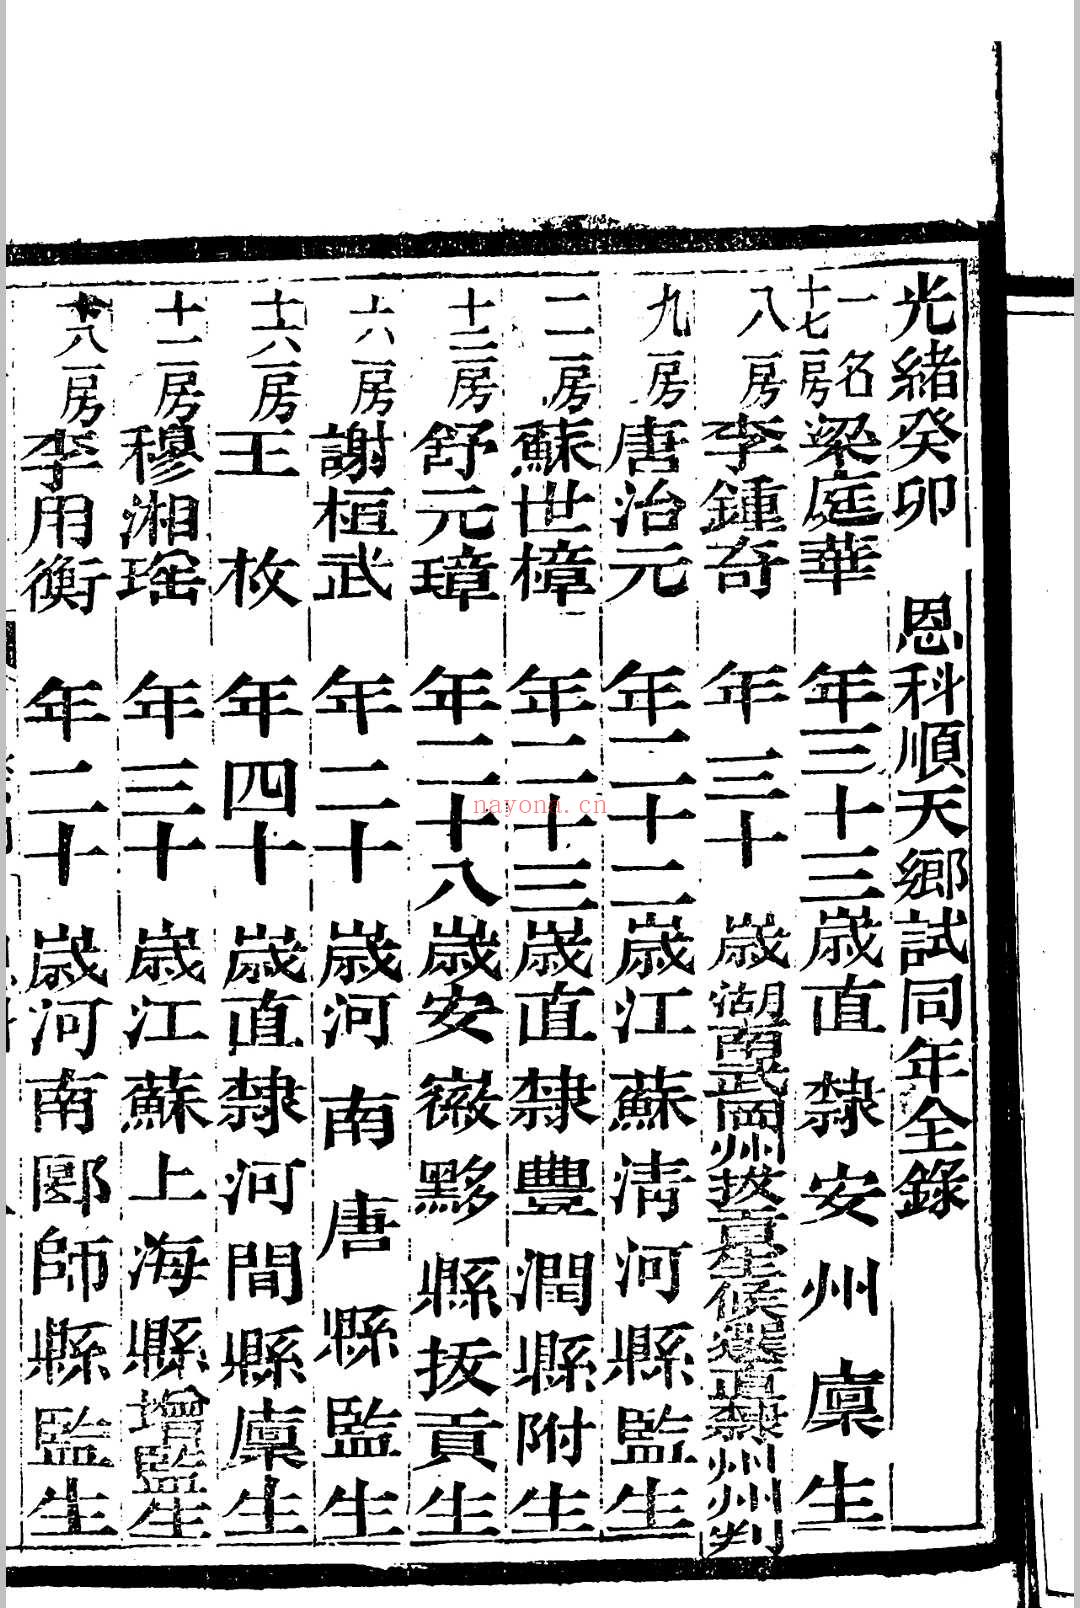 光緒癸卯 恩科順天鄉試同年全錄
一名
十七房
梁庭華 年三十三歲直隸安州廩生
八房
李鍾奇 年三十歲湖南武岡州拔貢生候選直隸州州判
九房
唐治元 年二十二歲江蘇清河縣監生
二房
蘇世樟 年二十三歲直隸豐潤縣附生
十二房
舒元璋 年二十八歲安徽黟縣拔貢生
六房
謝桓武 年二十歲河南唐縣監生
十六房
王 枚 年四十歲直隸河間縣廩生
十二房
穆湘瑤 年三十歲江蘇上海縣增監生
十八房
李用衡 年二十歲河南郾師縣監生
nayona.cn